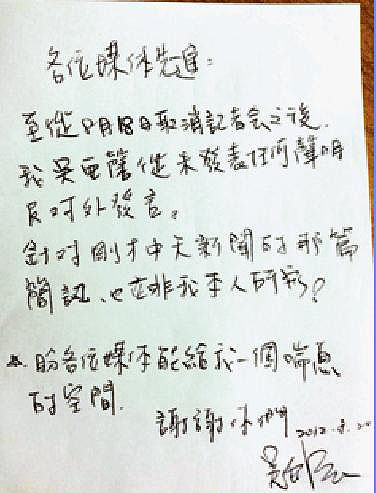 各位媒体先進：
至從8月18日取消記者会之後，
我吳亞馨從未發表任何聲明
及对外發言。
針对剛才中天新聞的那篇
簡訊、也並非我本人所為！
盼各位媒体能給我一個喘息
的空間．
謝謝你們 2012.8.20